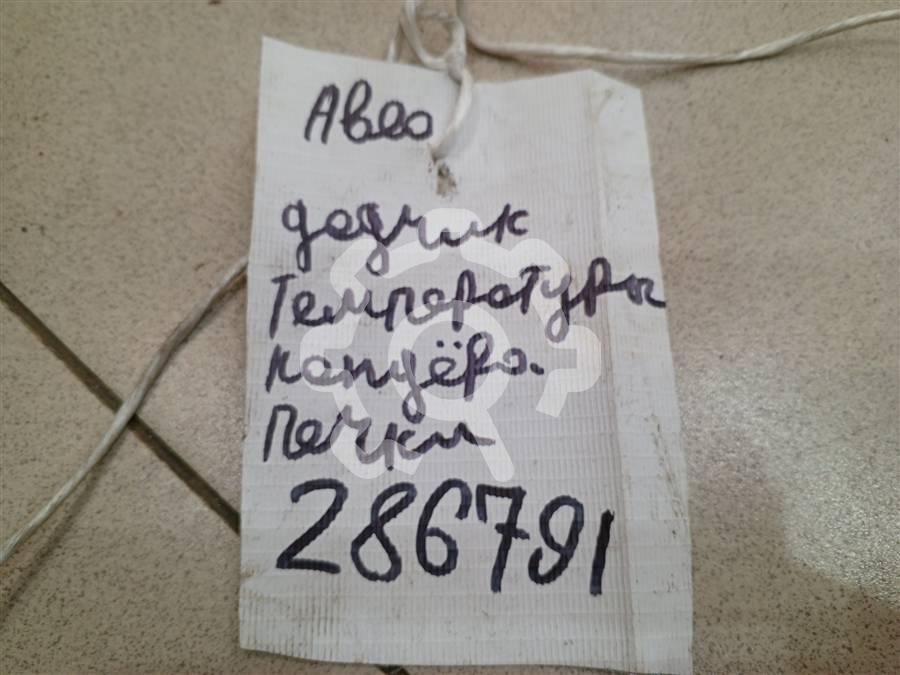 Авео
датчик
Температуры
концёра.
Печки
286791